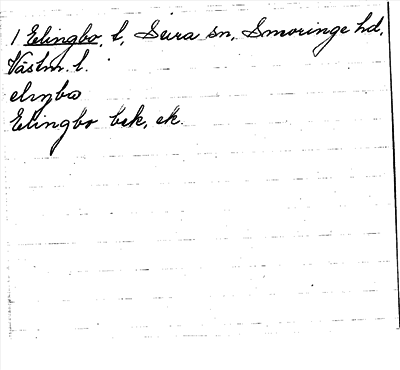 1 Elingbo, l, Sura sn, Snevringe hd,
Västm. l.
elıŋbω
Elingbo bek, ek.